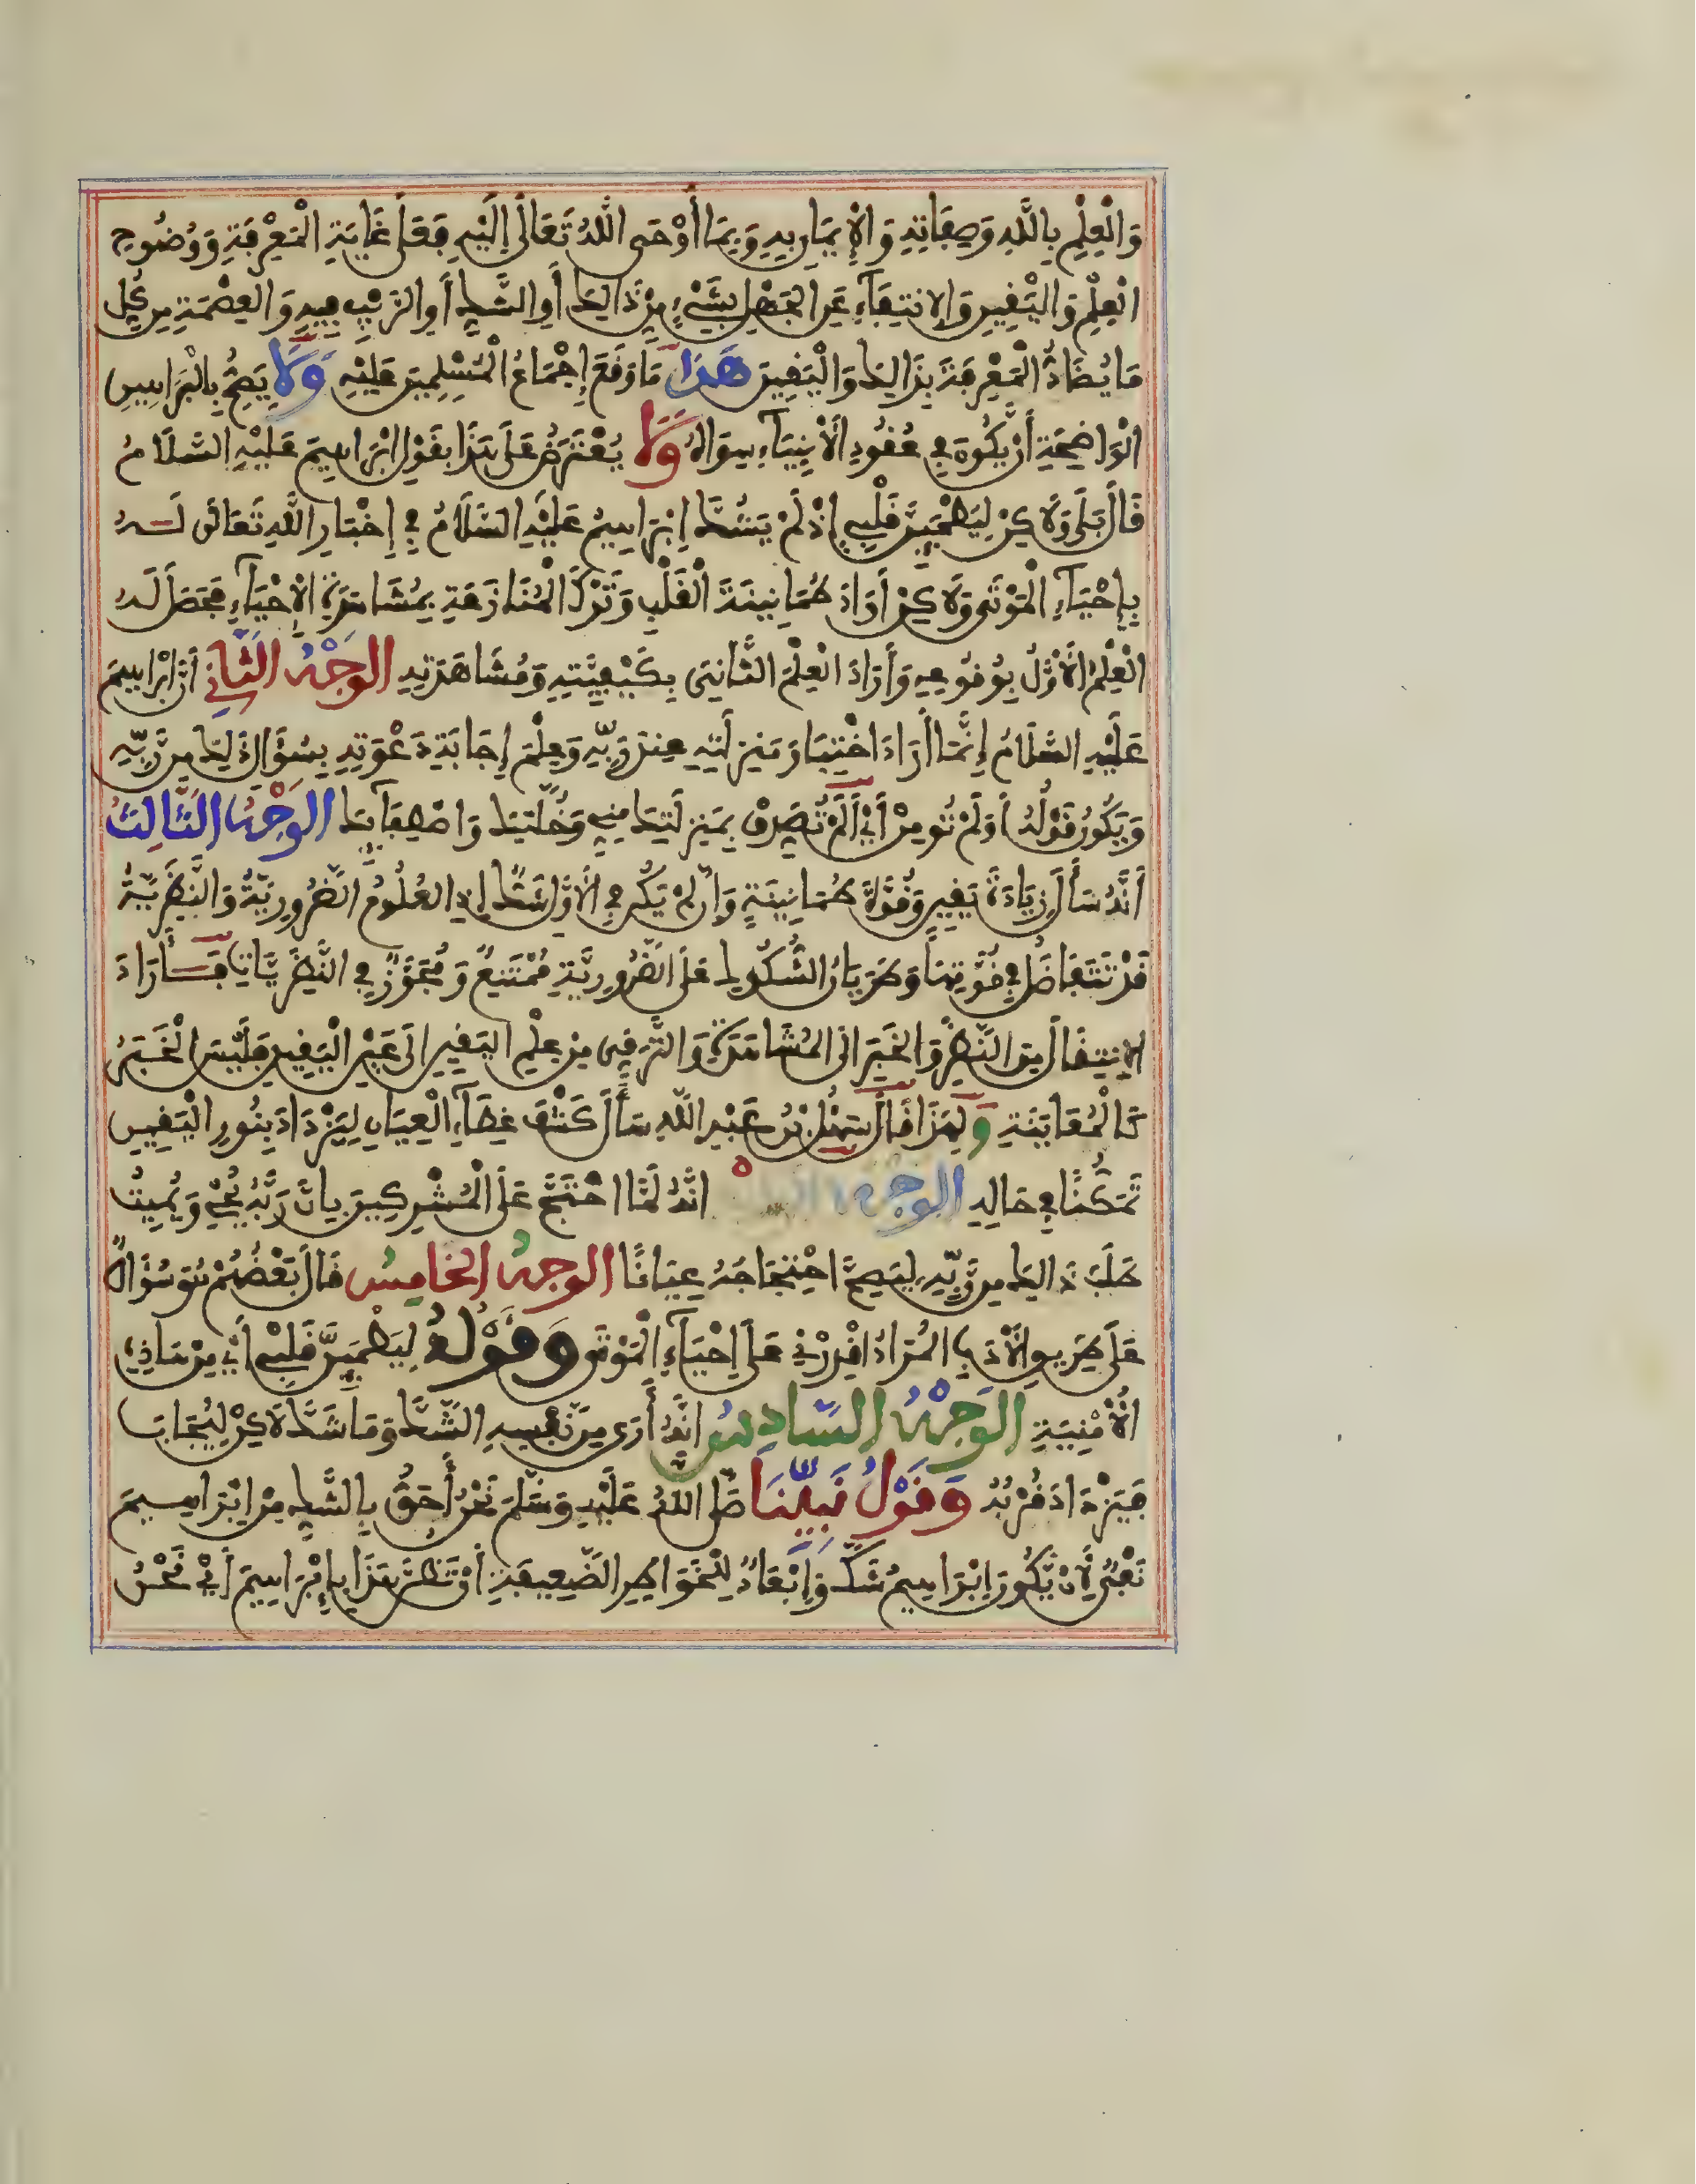 وَالْعِلْمِ بِاللَّهِ وَصِفَاتِهِ وَالْإِيمَانِ بِهِ وَبِمَا أَوْحَى اللَّهُ تَعَالَى إِلَيْهِ فَعَلَى غَايَةِ الْمَعْرِفَةِ وَوُضُوحِ
الْعِلْمِ وَالْيَقِينِ وَالِانْتِفَاءِ عَنِ الْجَهْلِ بِشَيْءٍ مِنْ ذَالِكَ أَوِ الشَّكِّ أَوِ الرَّيْبِ فِيهِ وَالْعِصْمَةِ مِن كُلِّ
مَا يُضَادُّ الْمَعْرِفَةَ بِذَالِكَ وَالْيَقِينَ هَذَا مَا وَقَعَ إِجْمَاعُ الْمُسْلِمِينَ عَلَيْهِ وَلَا يَصِحُّ بِالْبَرَاهِينِ
الْوَاضِحَةِ أَنْ يَكُونَ فِي عُقُودِ الْأَنْبِيَاءِ سِوَاهُ وَلَا يُعْتَرَضُ عَلَى هَذَا بِقَوْلِ إِبْرَاهِيمَ عَلَيْهِ السَّلَامُ
قَالَ بَلَى وَلَاكِنْ لِيَطْمَئِنَّ قَلْبِي إِذْ لَمْ يَشُكَّ إِبْرَاهِيمُ عَلَيْهِ السَّلَامُ فِي إِخْبَارِ اللَّهِ تَعَالَى لَهُ
بِإِحْيَاءِ الْمَوْتَى وَلَاكِنْ أَرَادَ طُمَانِينَةَ الْقَلْبِ وَتَرْكَ الْمُنَازَعَةِ بِمُشَاهَدَةِ الْإِحْيَاءِ فَحَصَلَ لَهُ
الْعِلْمُ الْأَوَّلُ بِوُقُوعِهِ وَأَرَادَ الْعِلْمَ الثَّانِيَ بِكَيْفِيَّتِهِ وَمُشَاهَدَتِهِ الْوَجْهُ الثَّانِي أَنَّ إِبْرَاهِيمَ
عَلَيْهِ السَّلَامُ إِنَّمَا أَرَادَ اخْتِبَارَ مَنْزِلَتِهِ عِنْدَ رَبِّهِ وَعِلْمَ إِجَابَةِ دَعْوَتِهِ بِسُؤَالِ ذَلِكَ مِن رَّبِّهِ
وَيَكُونُ قَوْلُهُ أَوَلَمْ تُومِنْ أَيْ أَلَمْ تُصَدِّقْ بِمَنْزِلَتِكَ مِنِّي وَخُلَّتِكَ وَاصْطِفَائِكَ الْوَجْهُ الثَّالِثُ
أَنَّهُ سَأَلَ زِيَادَةَ يَقِينٍ وَقُوَّةَ طُمَانِينَةٍ وَإِن لَمْ يَكُن فِي الْأَوَّلِ شَكٌّ إِذِ الْعُلُومُ الضَّرُورِيَّةُ وَالنَّظَرِيَّةُ
قَدْ تَتَفَاضَلُ فِي قُوَّتِهَا وَطَرَيَانُ الشُّكُوكِ عَلَى الضَّرُورِيَّةِ مُمْتَنِعٌ وَمُجَوَّزٌ فِي النَّظَرِيَّاتِ فَأَرَادَ
الِانْتِقَالَ مِنَ النَّظَرِ وَالْخَبَرِ إِلَى الْمُشَاهَدَةِ وَالتَّرَقِّي مِنْ عِلْمِ الْيَقِينِ إِلَى عَيْنِ الْيَقِينِ فَلَيْسَ الْخَبَرُ
كَالْمُعَايَنَةِ وَلِهَذَا قَالَ سَهْلُ بْنُ عَبْدِ اللَّهِ سَأَلَ كَشْفَ غِطَاءِ الْعِيَانِ لِيَزْدَادَ بِنُورِ الْيَقِينِ
تَمَكُّنًا فِي حَالِهِ الْوَجْهُ أَنَّهُ لَمَّا احْتَجَّ عَلَى الْمُشْرِكِينَ بِأَنَّ رَبَّهُ يُحْيِي وَيُمِيتُ
طَلَبَ ذَالِكَ مِن رَّبِّهِ لِيَصِحَّ احْتِجَاجُهُ عِيَانًا الْوَجْهُ الْخَامِسُ قَالَ بَعْضُهُمْ هُوَ سُؤَالٌ
عَلَى طَرِيقِ الْأَدَبِ الْمُرَادُ أَقْدِرْنِي عَلَى إِحْيَاءِ الْمَوْتَى وَقَوْلُهُ لِيَطْمَئِنَّ قَلْبِي أَيْ مِنْ هَاذِهِ
الْأُمْنِيَةِ الْوَجْهُ السَّادِسُ أَنَّهُ أَرَى مِن نَّفْسِهِ الشَّكَّ وَمَا شَكَّ لَاكِنْ لِيُجَابَ
فَيَزْدَادَ قُرْبُهُ وَقَوْلُ نَبِيِّنَا صَلَّى اللَّهُ عَلَيْهِ وَسَلَّمَ نَحْنُ أَحَقُّ بِالشَّكِّ مِنْ إِبْرَاهِيمَ
نَفْيٌ لِأَنْ يَّكُونَ إِبْرَاهِيمُ شَكَّ وَإِبْعَادٌ لِلْخَوَاطِرِ الضَّعِيفَةِ أَنْ تَظُنَّ هَذَا بِإِبْرَاهِيمَ أَيْ نَحْنُ